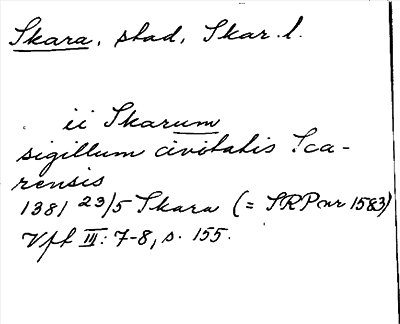 Skara, stad, Skar. l.
ii Skarum
sigillum civitatis Sca-
rensis
1381 23/5 Skara (= SRP nr 1583)
Vff III: 7-8, s. 155.